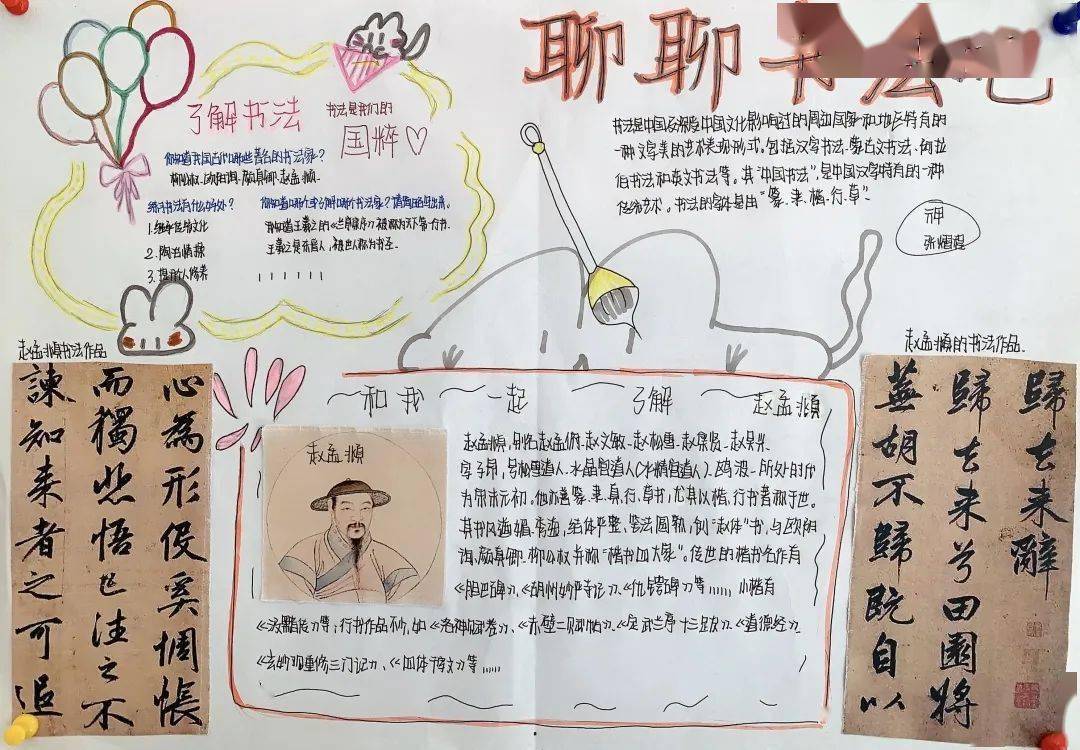 聊聊书法吧
了解书法
书法是我们的
国粹
你知道我国古代有哪些著名的书法家?
柳公权、欧阳询、颜真卿、赵孟頫.
练习书法有什么好处?
1.继承传统文化
2.陶冶情操
3.提高个人修养
你知道哪个或了解哪个书法家?请简要写出来。
我知道王羲之的《兰亭集序》被称为天下第一行书.
王羲之是东晋人,被世人称为书圣.
书法是中国及深受中国文化影响过的周边国家和地区特有的
一种文字美的艺术表现形式。包括汉字书法、蒙古文书法、阿拉
伯书法和英文书法等。其“中国书法”,是中国汉字特有的一种
传统艺术。书法的字体是由“篆、隶、楷、行、草”
赵孟頫书法作品
心為形役奚惆悵
而獨悲悟已往之不
諫知来者之可追
赵孟頫的书法作品
歸去来辭
歸去来兮田園將
蕪胡不歸既自以
和我一起了解赵孟頫
赵孟頫
赵孟頫,别名赵孟俯、赵文敏、赵松雪、赵集贤、赵吴兴.
字子昂,号松雪道人、水晶宫道人(水精宫道人)、鸥波.所处时代
为宋末元初.他亦善篆、隶、真、行、草书,尤其以楷、行书著称于世。
其书风遒媚、秀逸,结体严整、笔法圆熟,创“赵体”书,与欧阳
询、颜真卿、柳公权并称“楷书四大家”。传世的楷书名作有
《胆巴碑》、《湖州妙严寺记》、《仇锷碑》等…… 小楷有
《汲黯传》等;行书作品不少,如《洛神赋卷》、《赤壁二赋帖》、《定武兰亭十三跋》、《道德经》、
《玄妙观重修三门记》、《四体千字文》等……